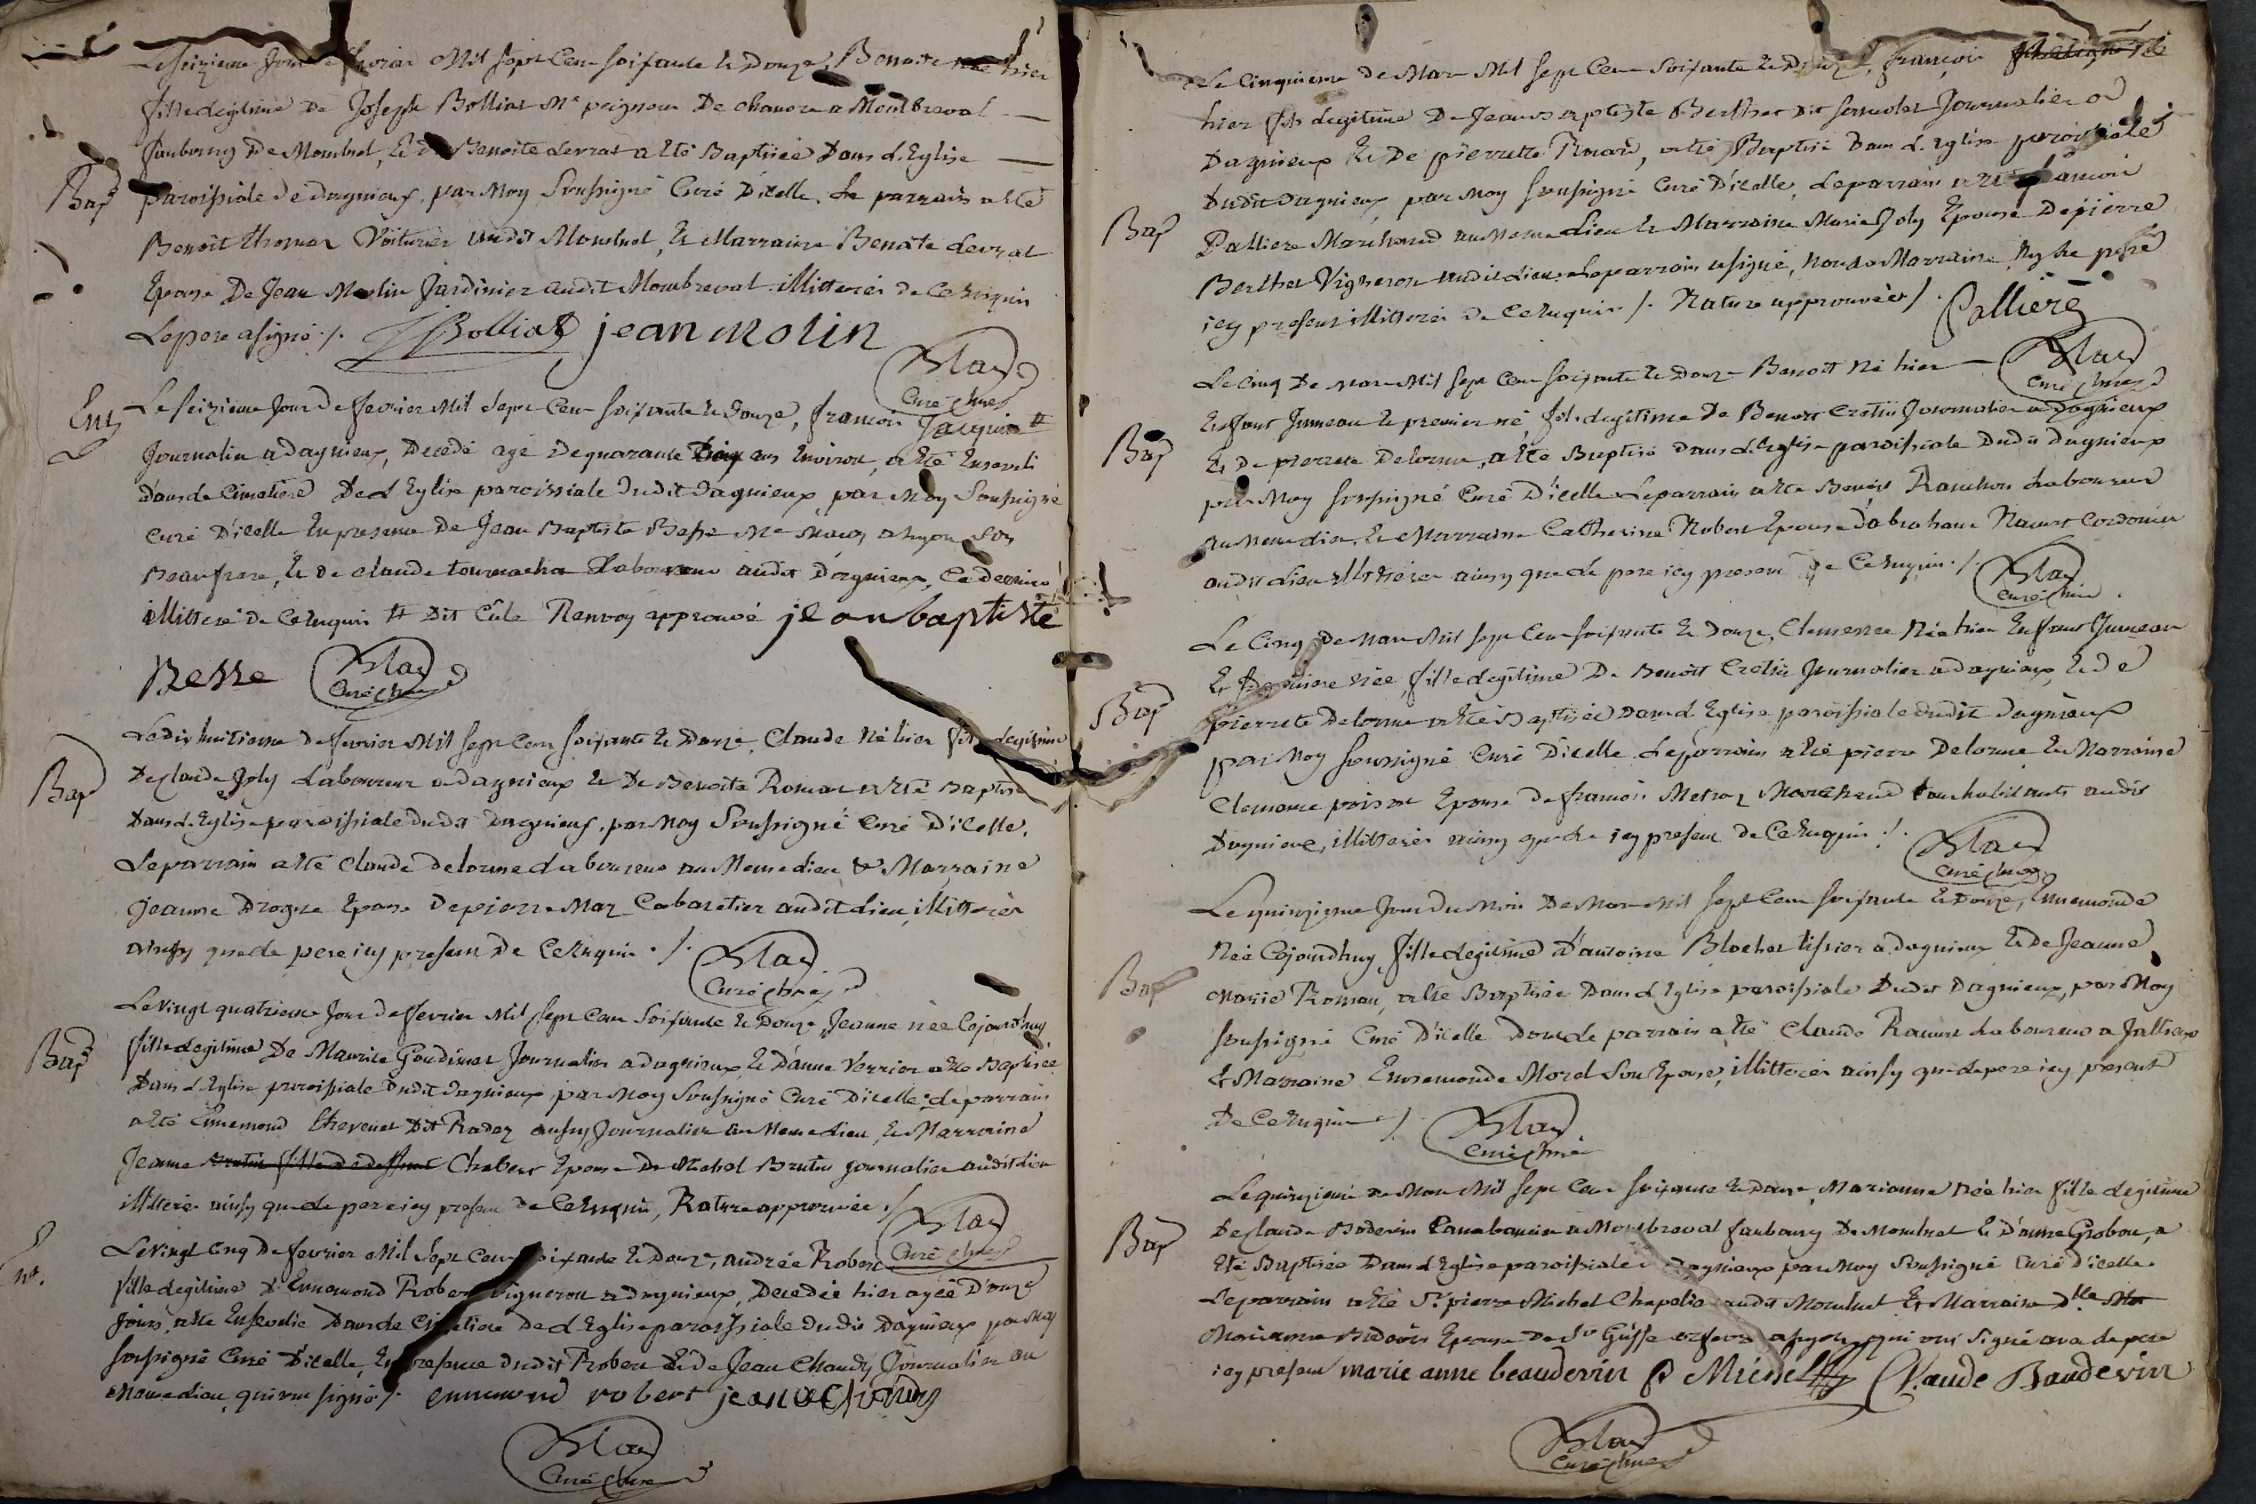 Le seizieme Jour de fevrier Mil sept Cen soixante & Douze, Benoite née hier
fille legitime De Joseph Bolliat Me peigneur De chanvre a Montbreval
faubourg De Monluel, & De Benoite Levrat a Eté Baptisée Dans L'Eglise
Bap
paroissiale de dagnieux, par Moy Soussigné Curé D'icelle. Le parrain a Eté
Benoit thomas Voiturier audit Monluel, & Marraine Benoite Levrat
Epouse De Jean Molin Jardinier audit Mombreval illitterés de Ce Enquis
Le pere a signé ./. JBolliat jean molin
Blay Curé
Ent
Le seizieme Jour de fevrier Mil Sept Cen soixante & Douze, francois Jacquin #
Journalier a dagnieux, Decedé agé De quarante ans Environ, a Eté Enseveli
Dans Le Cimetiere De L'Eglise paroissiale Dudit dagnieux, par Moy Soussigné
Curé D'icelle En presence De Jean Baptiste Besse Me Maçon a Lyon Son
Beaufrere, & De claude tournachon Laboureur audit Dagnieux, Ce dernier
illitteré De Ce Enquis # Dit Cule Renvoy approuvé jean baptiste
Besse Blay Curé
Le Dix huitieme De fevrier Mil sept Cen soixante & Douze, Claude Né hier fils legitime
Bap
De claude Joly Laboureur a dagnieux & De Benoite Roman a Eté Baptisé
Dans L'Eglise paroissiale Dudit Dagnieux, par Moy Soussigné Curé D'icelle.
Le parrain a Eté Claude Delorme Laboureur au Meme Lieu & Marraine
Jeanne Drogue Epouse De pierre Maz Cabaretier audit Lieu illitterés
ainsy que Le pere icy present De Ce Enquis ./.
Blay Curé
Le Vingt quatrieme Jour De fevrier Mil sept Cen Soixante & Douze, Jeanne née Cejourdhuy
Bap
fille legitime De Maurice Goudimat Journalier a dagnieux & D'anne Verrier a Eté Baptisée
Dans L'Eglise paroissiale Dudit dagnieux par Moy Soussigné Curé D'icelle. Le parrain
a Eté Ennemond thevenet Dit Radaz aussy Journalier au Meme Lieu, & Marraine
Jeanne Chabert Epouse De Michel Brutin journalier audit Lieu
illitterés ainsy que Le pere icy present De Ce Enquis, Rature approuvée ./.
Blay Curé
Ent.
Le Vingt Cinq De fevrier Mil Sept Cen soixante & Douze, andrée Robert
fille legitime D'Ennemond Robert Vigneron a dagnieux, Decedée hier agée D'onze
Jours, a Eté Ensevelie Dans Le Cimetiere De L'Eglise paroissiale Dudit Dagnieux par Moy
soussigné Curé D'icelle, En presence Dudit Robert & De Jean Chaudy Journalier au
Meme Lieu, qui ont signé ./. ennemond robert jean chaudy
Blay Curé
Le Cinquieme De Mars Mil sept Cen Soixante & Douze, françois Né
hier fils legitime De Jean Baptiste Berthet Dit Journalier a
Dagnieux & De pierrette Ruard, a Eté Baptisé Dans L'Eglise paroissiale
Bap
Dudit Dagnieux par Moy soussigné Curé D'icelle, Le parrain a Eté francois
Palliere Marchand au Meme Lieu & Marraine Marie Joly Epouse De pierre
Berthet Vigneron audit Lieu. Le parrain a signé, Non La Marraine Ny Le pere
icy present illitterés De Ce Enquis ./. Rature approuvée ./. Pallierè
Blay Curé
Le Cinq De Mars Mil sept Cen soixante & Douze Benoit Né hier
Enfant Jumeau & premier né, fils legitime De Benoit Cretin Journalier a Dagnieux
Bap
& De pierrette Delorme, a Eté Baptisé Dans L'Eglise paroissiale Dudit Dagnieux
par Moy soussigné Curé D'icelle Le parrain a Eté Benoit Ranchon Laboureur
au Meme Lieu, & Marraine Catherine Robert Epouse d'abraham Ravut Cordonier
audit Lieu illitterés ainsy que Le pere icy present De Ce Enquis ./.
Blay Curé
Le Cinq De Mars Mil sept Cen soixante & Douze, Clemence Née hier Enfant Jumeau
& Derniere née, fille legitime De Benoit Cretin Journalier a dagnieux, & De
Bap
pierrette Delorme a Eté Baptisée Dans L'Eglise paroissiale dudit dagnieux
par Moy soussigné Curé D'icelle. Le parrain a Eté pierre Delorme & Marraine
Clemence poisat Epouse De francois Metraz Marchand tous habitants audit
Dagnieux, illitterés ainsy que Le icy present De Ce Enquis ./.
Blay Curé
Le quinzieme Jour Du Mois De Mars Mil sept Cen soixante & Douze, Ennemonde
Née Cejourdhuy, fille legitime d'antoine Blochet tissier a dagnieux & De Jeanne
Bap
Marie Roman, a Eté Baptisée Dans L'Eglise paroissiale Dudit Dagnieux, par Moy
soussigné Curé D'icelle Dont Le parrain a Eté Claude Ravut Laboureur a Jallieux
& Marraine Ennemonde Morel Son Epouse, illitterés ainsy que Le pere icy present
De Ce Enquis ./.
Blay Curé
Le quinzieme De Mars Mil sept Cen soixante & Douze, Marianne née hier fille legitime
Bap
De Claude Boderin a Montbreval faubourg De Monluel & D'anne Grobon, a
Eté Baptisée Dans L'Eglise paroissiale Dagnieux par Moy Soussigné Curé D'icelle.
Le parrain a Eté Sr pierre Michel Chapelier audit Monluel & Marraine Dlle
Marianne Epouse De Sr a Lyon, qui ont Signé avec Le pere
icy present marie anne beauderin P Michel Claude Bauderin
Blay Curé